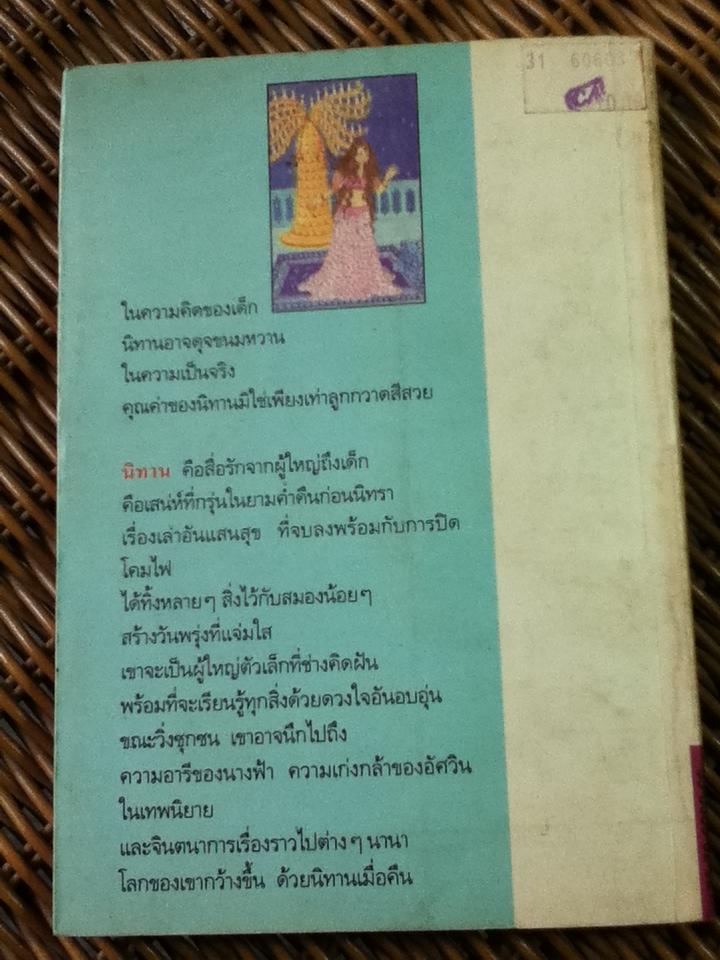 31 60603
ในความคิดของเด็ก
นิทานอาจดุจขนมหวาน
ในความเป็นจริง
คุณค่าของนิทานมิใช่เพียงเท่าลูกกวาดสีสวย
นิทาน คือสื่อรักจากผู้ใหญ่ถึงเด็ก
คือเสน่ห์ที่กรุ่นในยามค่ำคืนก่อนนิทรา
เรื่องเล่าอันแสนสุข ที่จบลงพร้อมกับการปิด
โคมไฟ
ได้ทิ้งหลายๆ สิ่งไว้กับสมองน้อยๆ
สร้างวันพรุ่งที่แจ่มใส
เขาจะเป็นผู้ใหญ่ตัวเล็กที่ช่างคิดฝัน
พร้อมที่จะเรียนรู้ทุกสิ่งด้วยดวงใจอันอบอุ่น
ขณะวิ่งซุกซน เขาอาจนึกไปถึง
ความอารีของนางฟ้า ความเก่งกล้าของอัศวิน
ในเทพนิยาย
และจินตนาการเรื่องราวไปต่างๆ นานา
โลกของเขากว้างขึ้น ด้วยนิทานเมื่อคืน